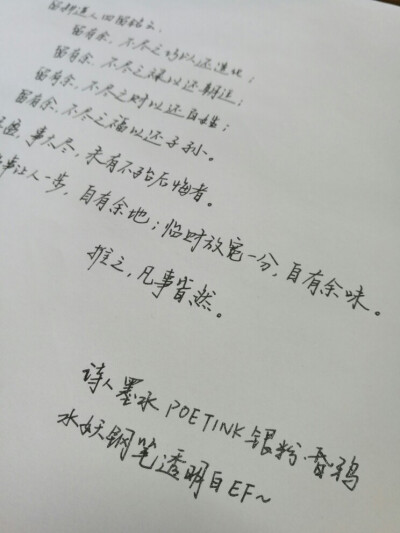 留耕道人四留铭云:
留有余,不尽之巧以还造化;
留有余,不尽之禄以还朝廷;
留有余,不尽之财以还百姓;
留有余,不尽之福以还子孙。
盛,事太尽,未有不贻后悔者。
事让人一步,自有余地;临财放宽一分,自有余味。
推之,凡事皆然。
诗人墨水 POETINK 银粉·昏鸦
水妖钢笔透明白EF~